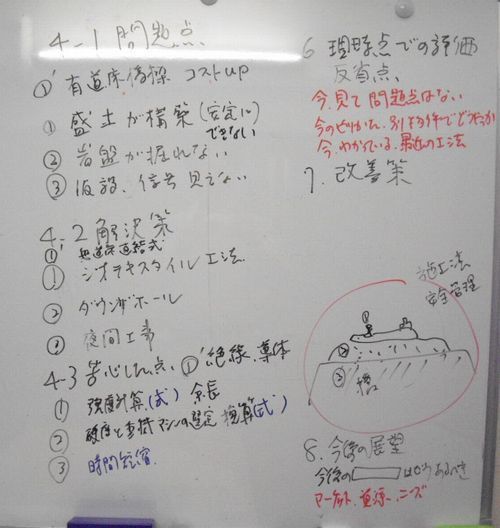 4-1 問題点
①' 有道床 コストup
① 盛土が構築(安定に)
できない
② 岩盤が掘れない
③ 仮設、信号 見えない
4.2 解決策
① 無道床直結式
① ジオテキスタイル工法
② ダウンザホール
③ 夜間工事
4-3 苦心した点 ①' 絶縁、導体
① 強度計算(式) 余長
② 硬度と マシンの選定 (式)
③ 時間短縮
6 現時点での評価
反省点
今、見て問題点はない
今のやりかた、別な条件でどうか
今、わかっている、最近の工法
7. 改善策
施工法
安全管理
①
②
③
8. 今後の展望
今後の はどうあるべき
マーケット、資源、ニーズ